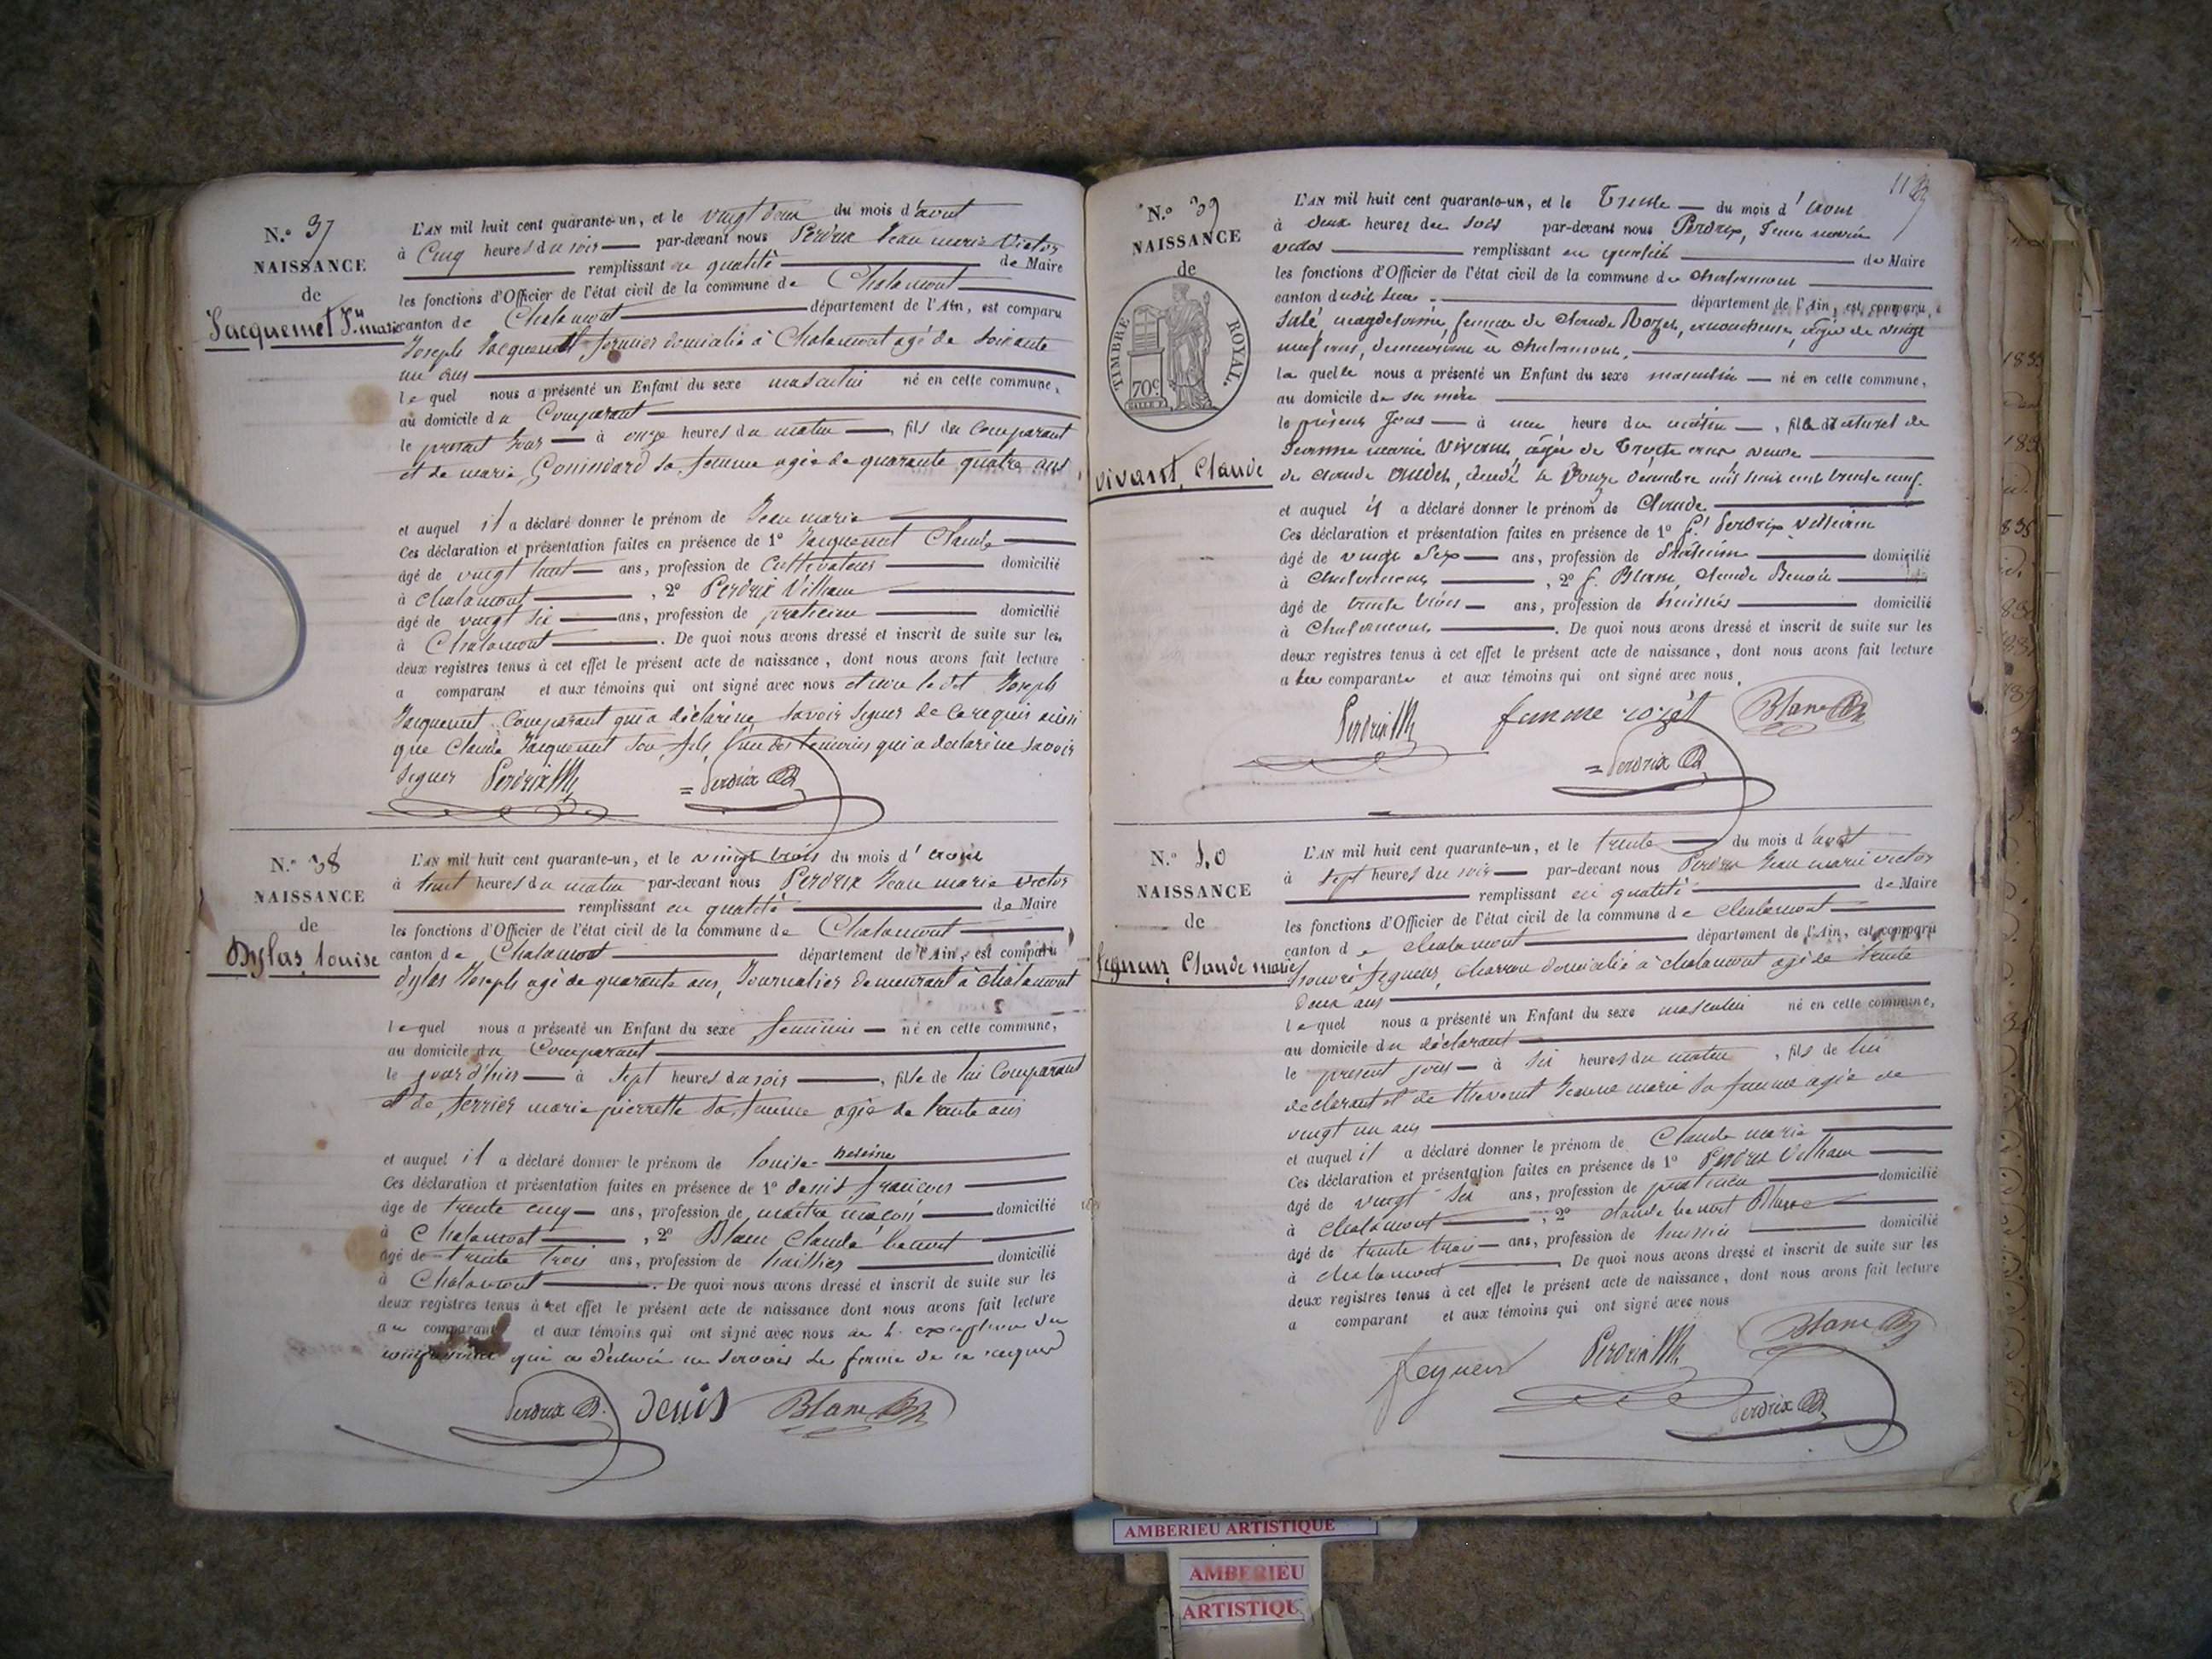 N.º 37
NAISSANCE
de
Jacquemet Jn marie
L'AN mil huit cent quarante-un, et le vingt deux du mois d'aout
à Cinq heures du soir par-devant nous Perdrix Jean marie Victor
remplissant en qualité de Maire
les fonctions d'Officier de l'état civil de la commune de Chalamont
canton de Chalamont département de l'Ain, est comparu
Joseph Jacquemet fermier domicilié à Chalamont agé de soixante
un ans
le quel nous a présenté un Enfant du sexe masculin né en cette commune,
au domicile du Comparant
le présent jour à onze heures du matin, fils du comparant
et de marie Goninvard sa femme agée de quarante quatre ans
et auquel il a déclaré donner le prénom de Jean marie
Ces déclaration et présentation faites en présence de 1º Jacquemet Claude
âgé de vingt huit ans, profession de Cultivateur domicilié
à Chalamont, 2º Perdrix William
âgé de vingt six ans, profession de praticien domicilié
à Chalamont. De quoi nous avons dressé et inscrit de suite sur les
deux registres tenus à cet effet le présent acte de naissance, dont nous avons fait lecture
a comparant et aux témoins qui ont signé avec nous et non le dit Joseph
Jacquemet Comparant qui a déclaré ne savoir signer de ce requis ainsi
que Claude Jacquemet son fils l'un des temoins qui a déclaré ne savoir
signer Perdrix
Perdrix
N.º 38
NAISSANCE
de
Dylas, Louise
L'AN mil huit cent quarante-un, et le vingt trois du mois d'aout
à huit heures du matin par-devant nous Perdrix Jean marie victor
remplissant en qualité de Maire
les fonctions d'Officier de l'état civil de la commune de Chalamont
canton de Chalamont département de l'Ain, est comparu
Dylas Joseph agé de quarante ans, Journalier demeurant à Chalamont
le quel nous a présenté un Enfant du sexe féminin né en cette commune,
au domicile du Comparant
le jour d'hier à sept heures du soir, fille de lui Comparant
et de ferrier marie pierrette sa femme agée de trente ans
et auquel il a déclaré donner le prénom de Louise
Ces déclaration et présentation faites en présence de 1º denis françois
âge de trente cinq ans, profession de maitre maçon domicilié
à Chalamont, 2º Blanc Claude benoit
âgé de trente trois ans, profession de huissier domicilié
à Chalamont. De quoi nous avons dressé et inscrit de suite sur les
deux registres tenus à cet effet le présent acte de naissance dont nous avons fait lecture
au comparant et aux témoins qui ont signé avec nous
qui a déclaré ne savoir le faire de ce requis
Perdrix denis Blanc
113
N.º 39
NAISSANCE
de
TIMBRE ROYAL.
70c
vivant, Claude
L'AN mil huit cent quarante-un, et le Trente du mois d'aout
à deux heures du soir par-devant nous Perdrix, Jean marie
victor remplissant en qualité de Maire
les fonctions d'Officier de l'état civil de la commune de chalamont
canton dudit lieu département de l'Ain, est comparu
Salé magdelaine, femme de Claude Rozet, accoucheuse, agée de vingt
neuf ans, demeurant à chalamont,
la quelle nous a présenté un Enfant du sexe masculin né en cette commune,
au domicile de sa mère
le présent Jour à une heure du matin, fils naturel de
Jeanne marie Vivant, agée de Trente ans veuve
de Claude décédé le douze décembre mil huit cent trente neuf.
et auquel il a déclaré donner le prénom de Claude
Ces déclaration et présentation faites en présence de 1º Perdrix William
âgé de vingt six ans, profession de Praticien domicilié
à Chalamont, 2º Blanc, Claude Benoit
âgé de trente trois ans, profession de huissier domicilié
à Chalamont. De quoi nous avons dressé et inscrit de suite sur les
deux registres tenus à cet effet le présent acte de naissance, dont nous avons fait lecture
a la comparante et aux témoins qui ont signé avec nous.
Perdrix femme rozet Blanc
Perdrix
N.º 40
NAISSANCE
de
Segneur Claude marie
L'AN mil huit cent quarante-un, et le trente du mois d'aout
à sept heures du soir par-devant nous Perdrix Jean marie victor
remplissant en qualité de Maire
les fonctions d'Officier de l'état civil de la commune de Chalamont
canton de chalamont département de l'Ain, est comparu
Segneur, charron domicilié à chalamont agé de trente
deux ans
le quel nous a présenté un Enfant du sexe masculin né en cette commune,
au domicile du déclarant
le present jour à six heures du matin, fils de lui
declarant et de thevenet Jeanne marie sa femme agée de
vingt un ans
et auquel il a déclaré donner le prénom de Claude marie
Ces déclaration et présentation faites en présence de 1º Perdrix William
âgé de vingt six ans, profession de praticien domicilié
à chalamont, 2º claude benoit Blanc
âgé de trente trois ans, profession de huissier domicilié
à chalamont. De quoi nous avons dressé et inscrit de suite sur les
deux registres tenus à cet effet le présent acte de naissance, dont nous avons fait lecture
a comparant et aux témoins qui ont signé avec nous
Segneur Perdrix Blanc
Perdrix
AMBERIEU ARTISTIQUE
AMBERIEU
ARTISTIQUE